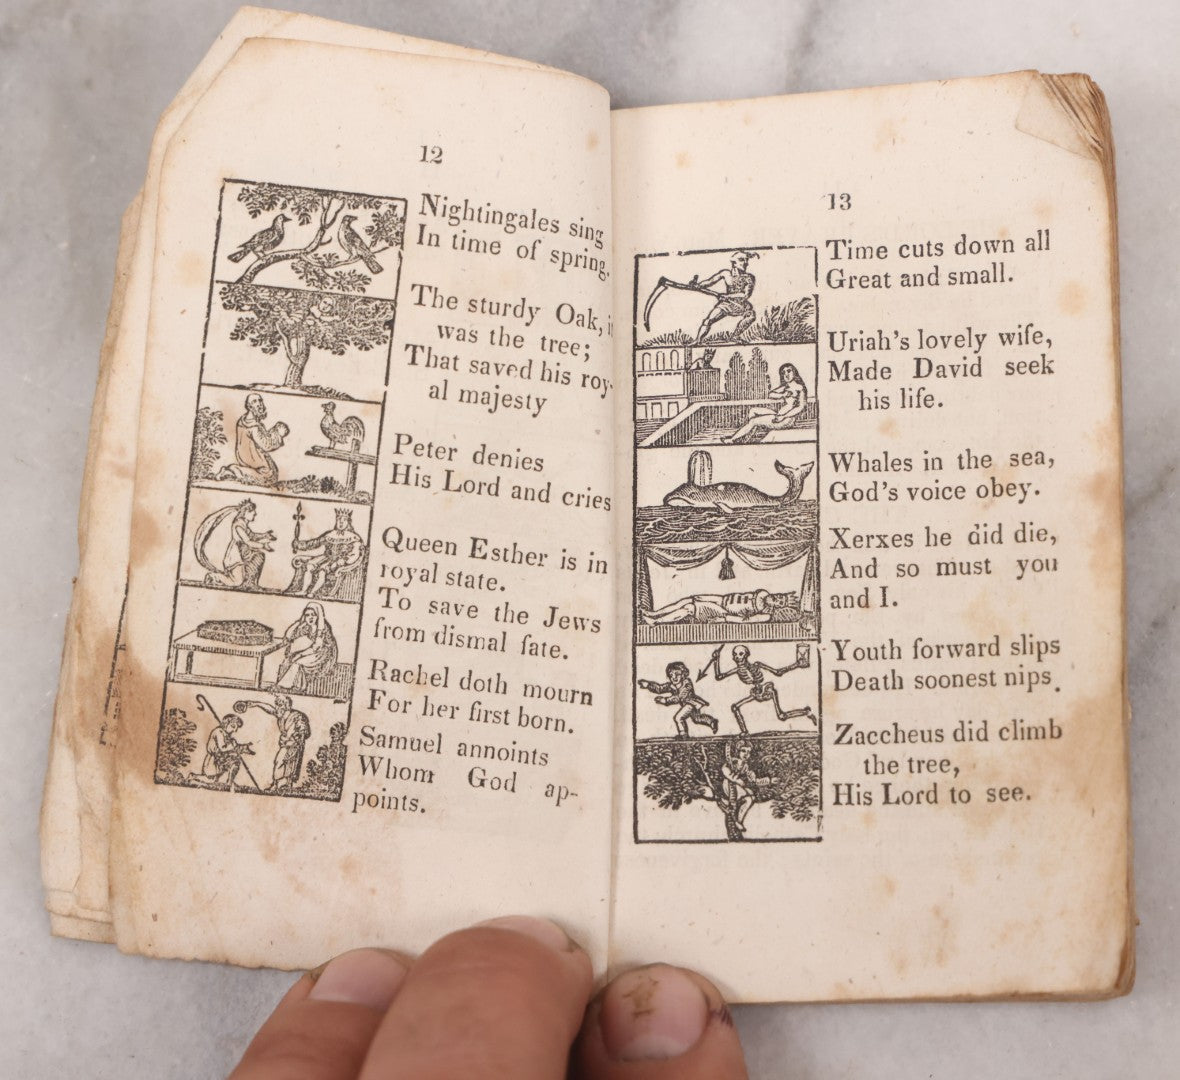 12
Nightingales sing
In time of spring.
The sturdy Oak, i
was the tree;
That saved his roy-
al majesty
Peter denies
His Lord and cries
Queen Esther is in
royal state.
To save the Jews
from dismal fate.
Rachel doth mourn
For her first born.
Samuel annoints
Whom God ap-
points.
13
Time cuts down all
Great and small.
Uriah's lovely wife,
Made David seek
his life.
Whales in the sea,
God's voice obey.
Xerxes he did die,
And so must you
and I.
Youth forward slips
Death soonest nips.
Zaccheus did climb
the tree,
His Lord to see.